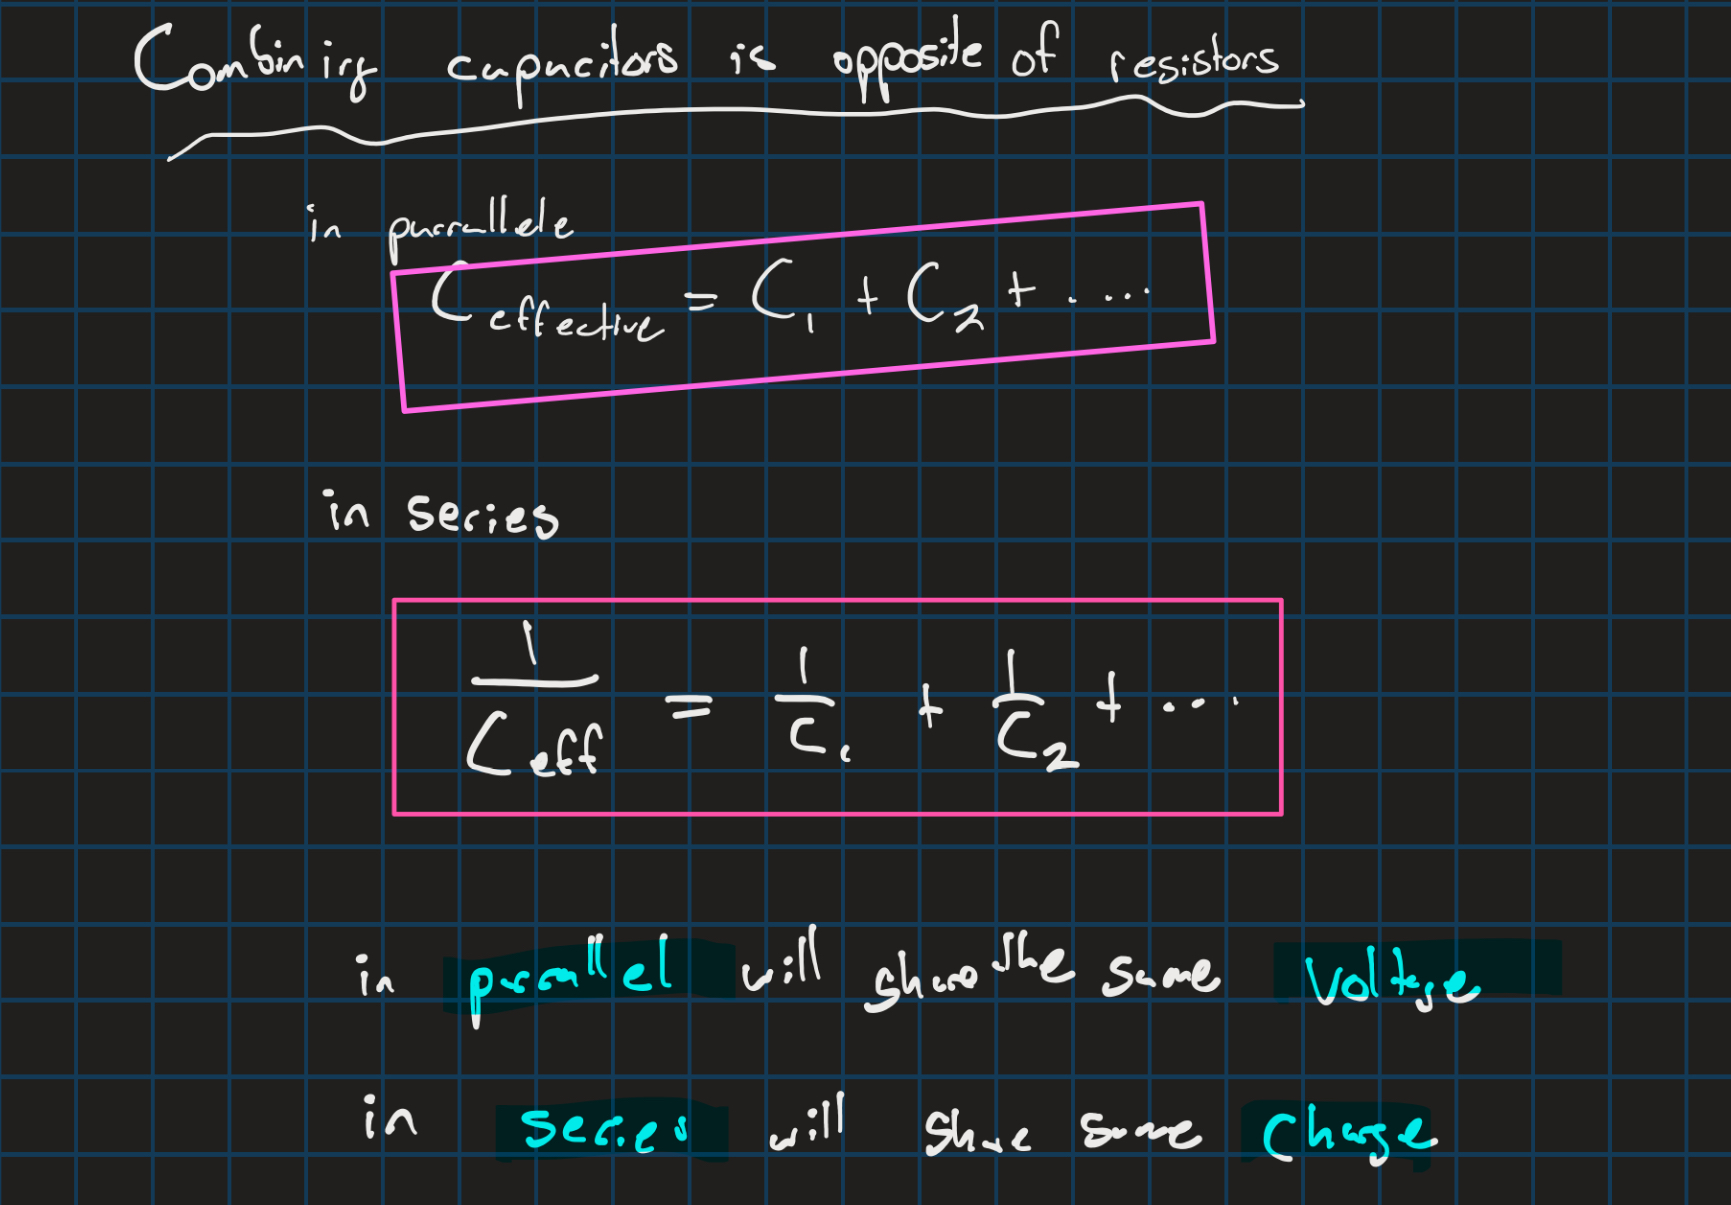 Combining capacitors is opposite of resistors
in parrallele
C effective = C₁ + C₂ + ....
in series
1/C eff = 1/C₁ + 1/C₂ + ...
in parallel will share the same Voltage
in series will share same Charge